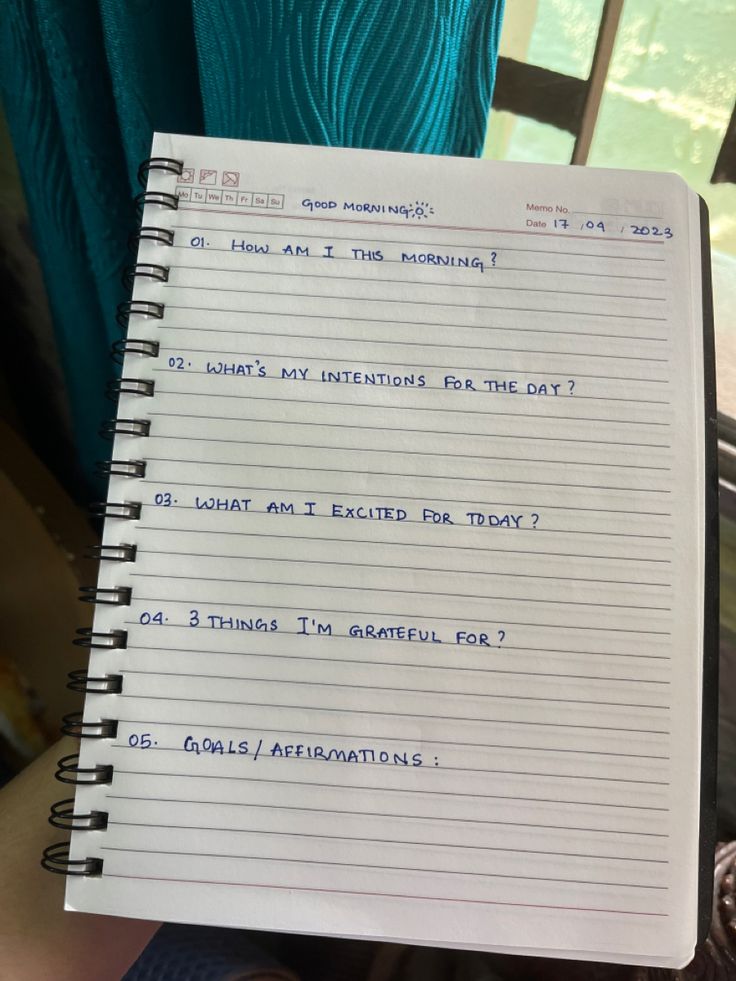 Mo Tu We Th Fr Sa Su
GOOD MORNING
Memo No.
Date 17 / 04 / 2023
01. HOW AM I THIS MORNING?
02. WHAT'S MY INTENTIONS FOR THE DAY?
03. WHAT AM I EXCITED FOR TODAY?
04. 3 THINGS I'M GRATEFUL FOR?
05. GOALS / AFFIRMATIONS: